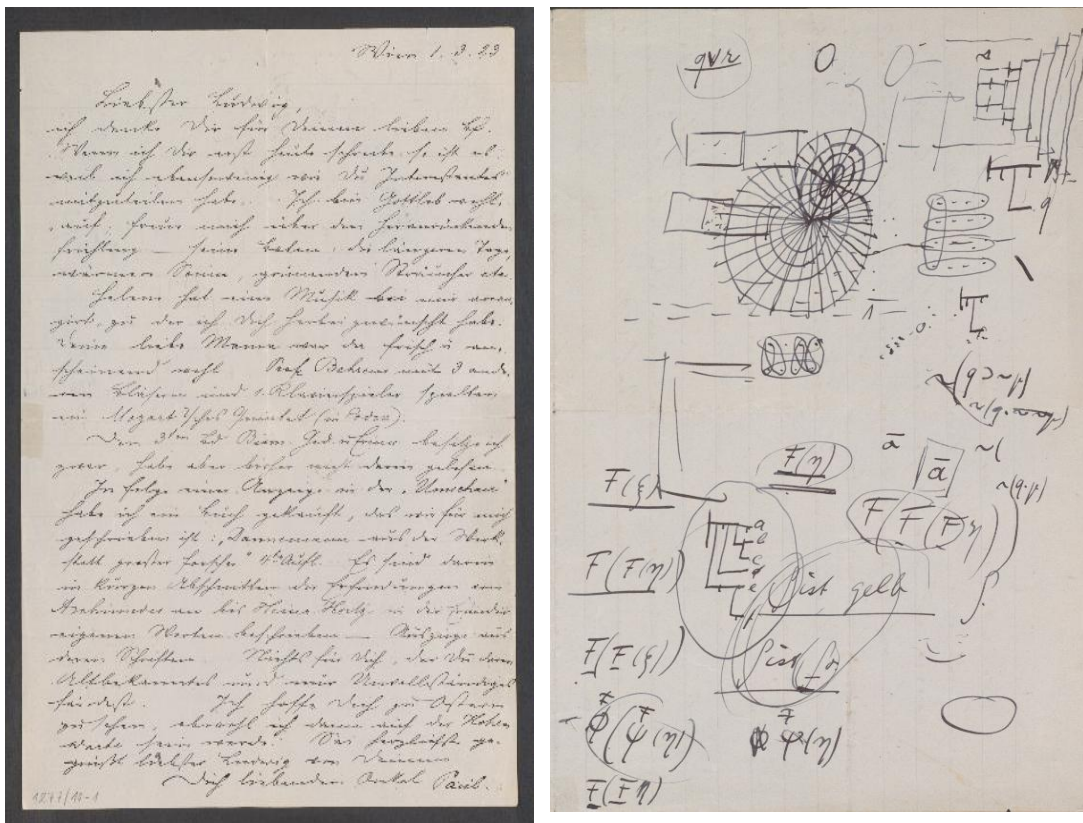 Wien 1.3.23
Liebster Ludwig,
ich danke Dir für Deinen lieben Bf.
Wenn ich Dir erst heute schreibe so ist es
weil ich ebensowenig wie Du Interessantes
mitzuteilen habe. Ich bin Gottlob wohl-
auf; freue mich über den heranrückenden
Frühling — seine Boten: die längeren Tage,
wärmere Sonne, grünenden Sträucher etc.
Helene hat eine Musik bei mir arran-
girt, zu der ich Dich herbei gewünscht habe.
Deine liebe Mama war da frisch u an-
scheinend wohl. Prof. mit 3 ande-
ren Bläsern und 1 Klavierspieler spielten
ein Mozart'sches Quintet
Den 3ten Bd Ged. u besitze ich
zwar, habe aber bisher nicht darin gelesen.
In Folge einer Anzeige in der „Umschau"
habe ich ein Buch gekauft, das wie für mich
geschrieben ist: „Dannemann aus der Werk-
statt großer Forscher" 4te Aufl. Es sind darin
in kurzen Abschnitten die Erfindungen von
Archimedes an bis Heinr. Hertz in der Erfinder
eigenen Worten beschrieben — Auszüge aus
deren Schriften. Nichts für Dich, der Du darin
Altbekanntes und nur Unvollständiges
fändest. Ich hoffe Dich zu Ostern
zu sehen, obwohl ich dann auf der Hohen
warte sein werde. Sei herzlichst ge-
grüßt liebster Ludwig von Deinem
Dich liebenden Onkel Paul.
1277/14-1
qvr
q
~(q⊃~p)
ā
ā
~(
~(q.p)
F(η)
F(ξ)
F(F(Fη))
F(F(η))
ist gelb
F(F(ξ))
ist
F(Fη)